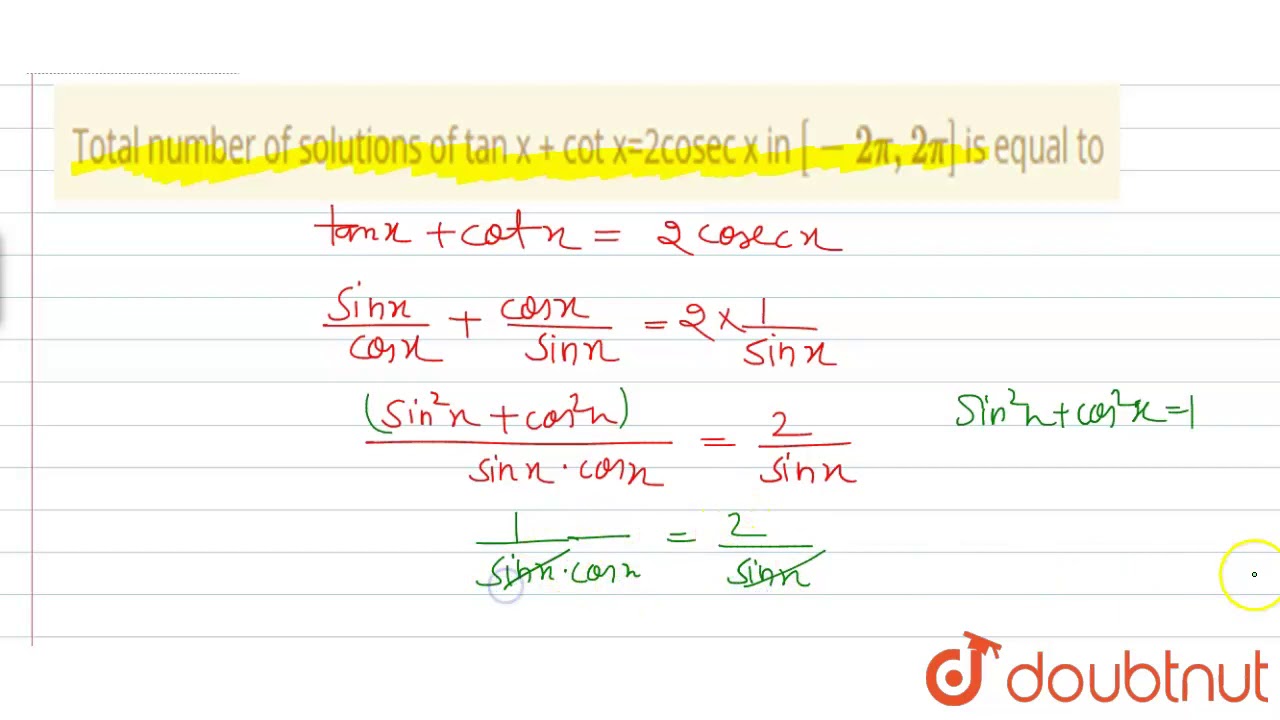 Total number of solutions of tan x + cot x=2cosec x in [−2π, 2π] is equal to
tanx + cotx = 2 cosecx
sinx/cosx + cosx/sinx = 2 × 1/sinx
(sin²x + cos²x)/sinx · cosx = 2/sinx
sin²x + cos²x = 1
1/sinx · cosx = 2/sinx
doubtnut